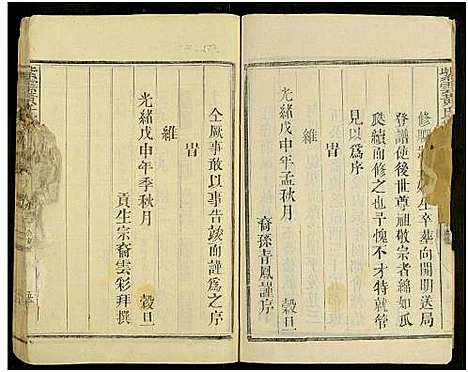 修
生卒葬向開明送局
登譜使後世尊祖敬宗者綿如瓜
瓞續而修之也予愧不才特就
見以爲序
旹
維
光緒戊申年孟秋月 穀旦
裔孫青鳳謹序
仝厥事敢以事告竣而謹爲之序
旹
維
光緒戊申年季秋月 穀旦
貢生宗裔雲彩拜撰
紫雲黃氏